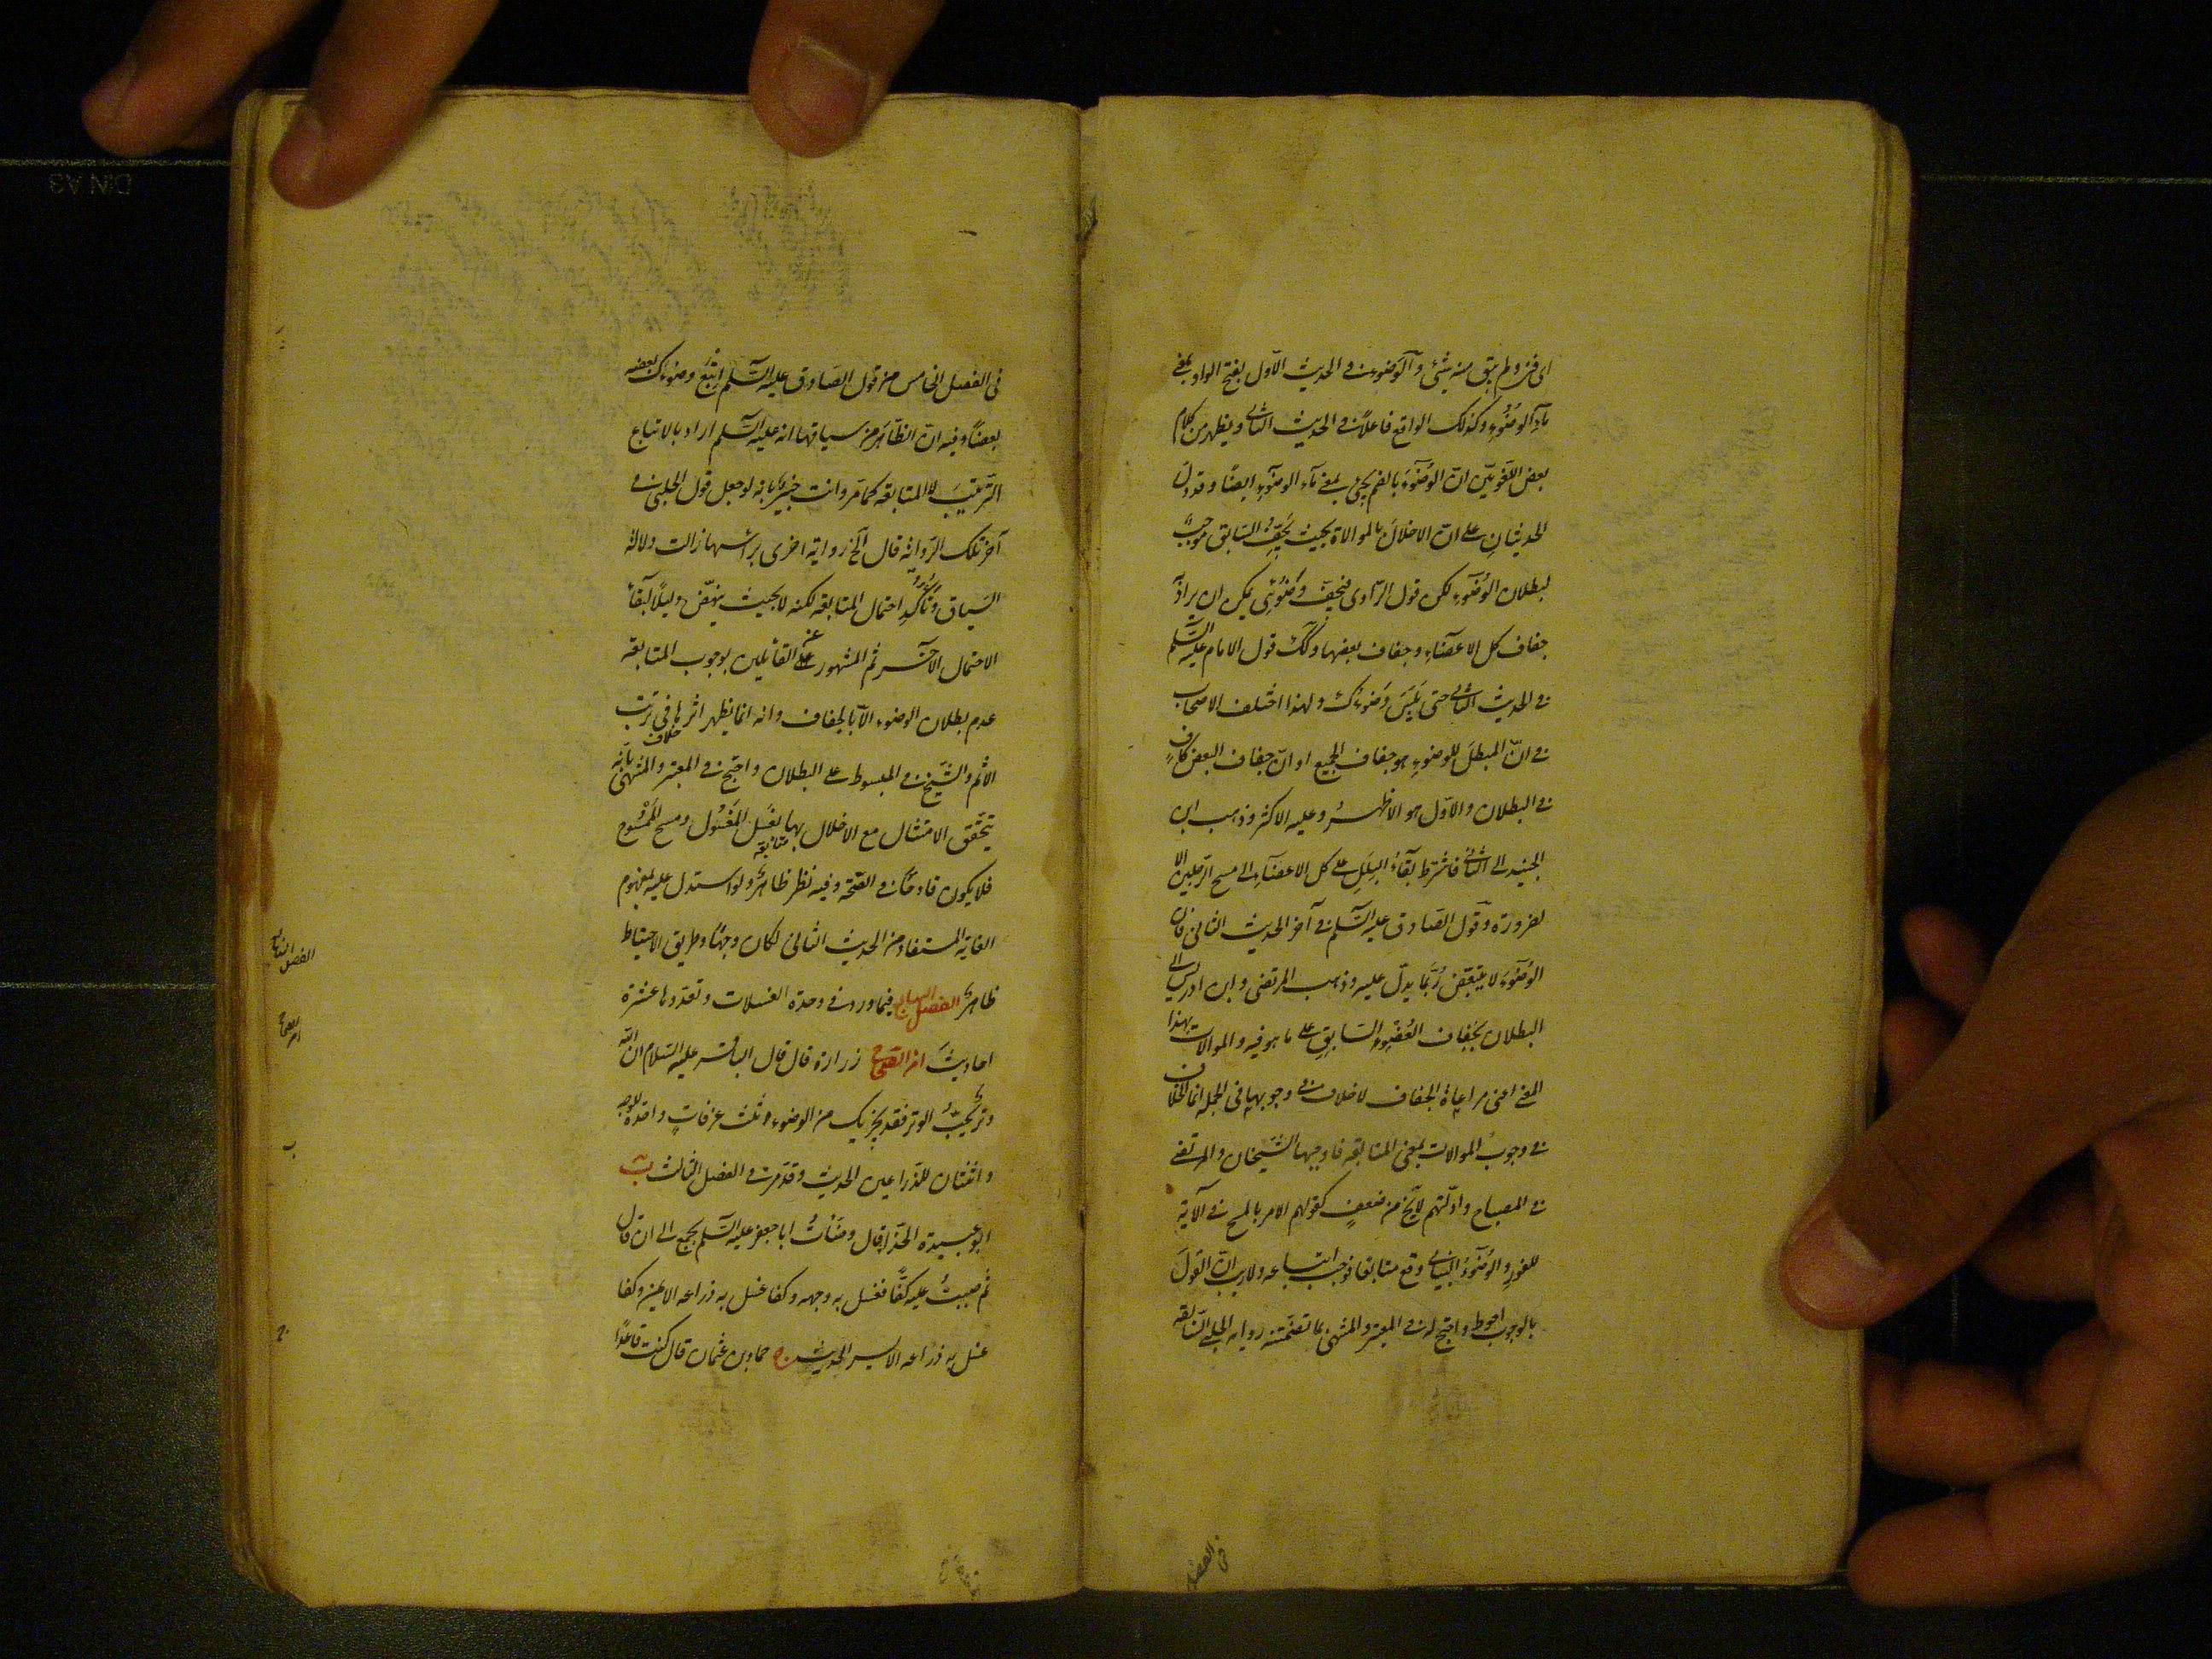 اى فنى ولم يبق منه شئ والوَضوء فى الحديث الاول بفتح الواو بمعنى
ماء الوضوء وكذلك الواقع فاعلا فى الحديث الثانى ويظهر من كلام
بعض اللغويين ان الوضوء بالضم يجئ بمعنى ماء الوضوء ايضا وقد دل
الحديثان على ان الاخلال بالموالاة بحيث يجف السابق موجب
لبطلان الوضوء لكن قول الراوى فيجف وضوئى يمكن ان يراد
جفاف كل الاعضاء وجفاف بعضها وكك قول الامام عليه السلم
فى الحديث الثانى حتى يبس وضوءك ولهذا اختلف الاصحاب
فى ان المبطل للوضوء هو جفاف الجميع او ان جفاف البعض كاف
فى البطلان والاول هو الاظهر وعليه الاكثر وذهب ابن
الجنيد الى الثانى فاشترط بقاء البلل على كل الاعضاء الى مسح الرجلين الا
لضرورة وقول الصادق عليه السلم فى آخر الحديث الثانى فان
الوضوء لا يتبعض ربما يدل عليه وذهب المرتضى وابن ادريس الى
البطلان بجفاف العضو السابق على ما هو فيه والموالات بهذا
المعنى اعنى مراعاة الجفاف لا خلاف فى وجوبها فى الجملة انما الخلاف
فى وجوب الموالات بمعنى المتابعة فاوجبها الشيخان والمرتضى
فى المصباح وادلتهم لا يخ من ضعف كقولهم الامر بالمسح فى الآية
للفور والوضوء البيانى وقع متابعا فوجب اتباعه ولا ريب ان القول
بالوجوب احوط واحتج له فى المعتبر والمنتهى بما تضمنته رواية الحلبى السابقة
فى الفصل
فى الفصل الخامس من قول الصادق عليه السلم اتبع وضوءك بعضه
بعضا وفيه ان الظاهر من سياقها انه عليه السلم اراد بالاتباع
الترتيب لا المتابعة كما مر وانت خبير بانه لو جعل قول الحلبى فى
آخر تلك الرواية قال الخ رواية اخرى براسها زالت دلالة
السياق وتاكد احتمال المتابعة لكنه لا بحيث ينهض دليلا لبقاء
الاحتمال الآخر ثم المشهور عند القائلين بوجوب المتابعة
عدم بطلان الوضوء الا بالجفاف وانه انما يظهر اثرها فى ترتب
الاثم والشيخ فى المبسوط على البطلان واحتج فى المعتبر والمنتهى بانه
خلاف
يتحقق الامتثال مع الاخلال بها بغسل المغسول ومسح الممسوح
فلا يكون قادحا فى الصحة وفيه نظر ظاهر ولو استدل عليه بمفهوم
متابعة
الغاية المستفاد من الحديث الثانى لكان وجها وطريق الاحتياط
ظاهر الفصل السابع فيما ورد فى وحدة الغسلات وتعددها عشرة
احاديث ا من الصحاح زرارة قال قال الباقر عليه السلام ان الله
وتر يحب الوتر فقد يجزيك من الوضوء ثلث غرفات واحدة للوجه
واثنتان للذراعين الحديث وقد مر فى الفصل الثالث ب
ابو عبيدة الحذا قال وضأت ابا جعفر عليه السلم بجمع الى ان قال
ثم صببت عليه كفا فغسل به وجهه وكفا غسل به ذراعه الايمن وكفا
غسل به ذراعه الايسر الحديث ج حماد بن عثمان قال كنت قاعدا
الفصل السابع
ا من الصحاح
ب
ج